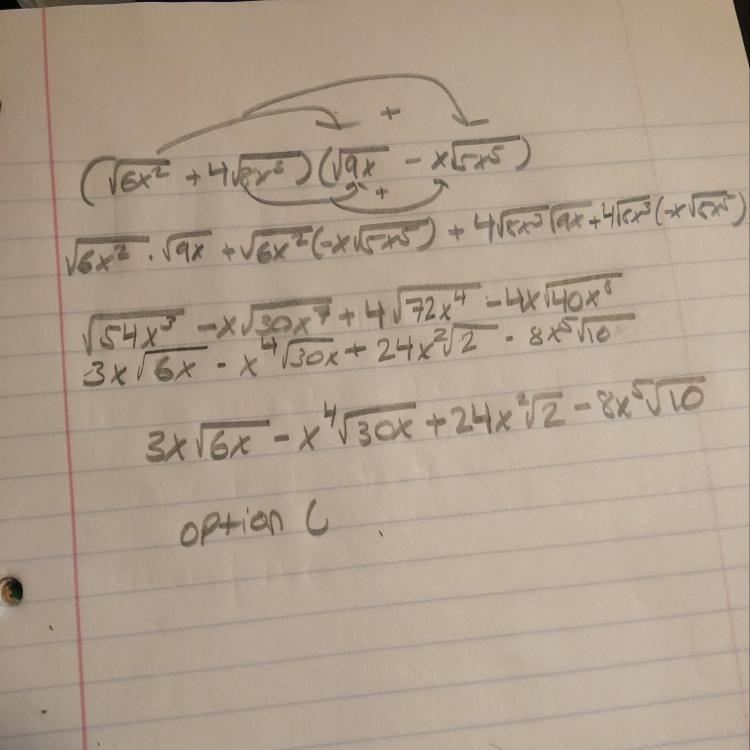 +
(√6x² + 4√8x³)(√9x − x√5x⁵)
+
√6x² · √9x + √6x²(-x√5x⁵) + 4√8x³√9x + 4√8x³(-x√5x⁵)
√54x³ − x√30x⁷ + 4√72x⁴ − 4x√40x⁸
3x√6x − x⁴√30x + 24x²√2 − 8x⁵√10
3x√6x − x⁴√30x + 24x²√2 − 8x⁵√10
option C